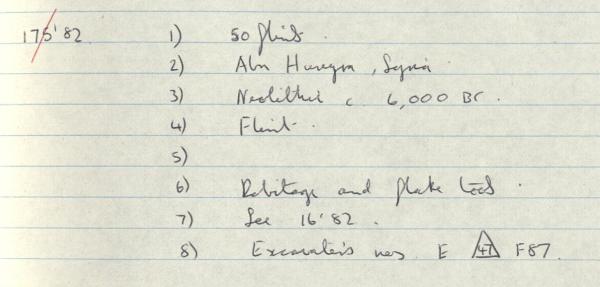 175'82 1) 50 flints.
2) Abu Hureyra, Syria.
3) Neolithic c. 6,000 BC.
4) Flint.
5)
6) Debitage and flake tools.
7) See 16'82.
8) Excavators nos. E 47 F87.